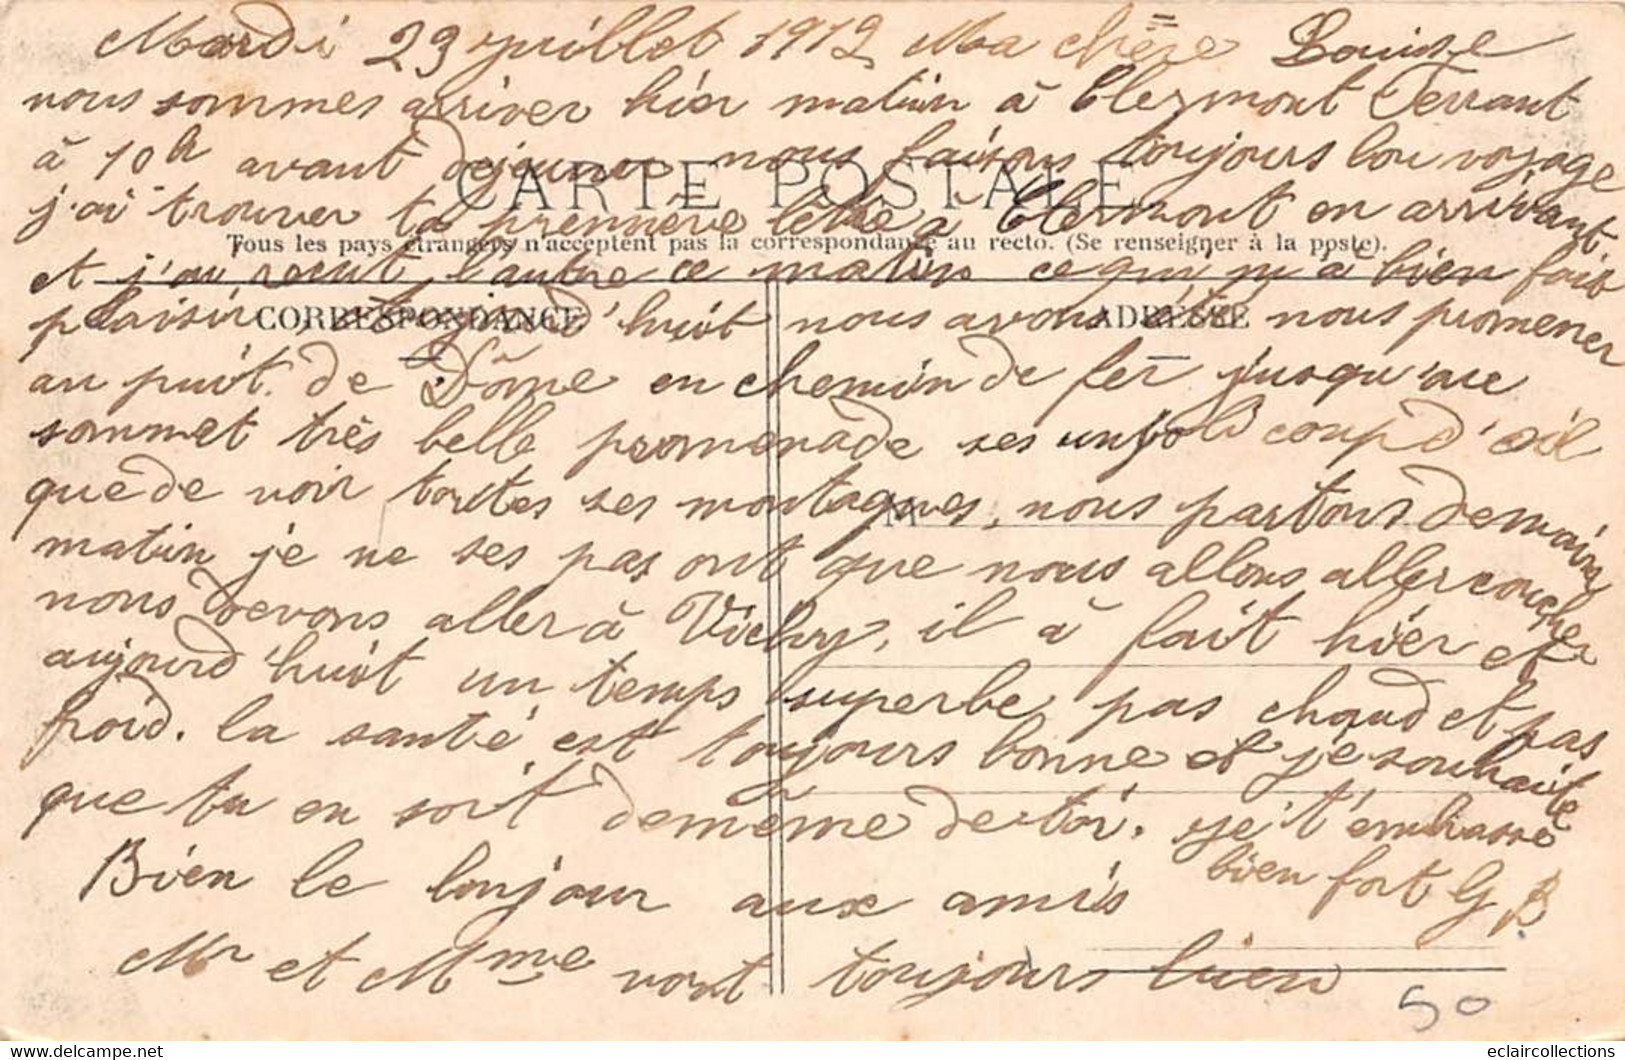 Mardi 23 juillet 1912 Ma chère Louise
nous sommes arriver hier matin à Clermont Ferrant
à 10h avant dejeuner nous faisons toujours bon voyage
CARTE POSTALE
j'ai trouver ta première lettre a Clermont en arrivant
Tous les pays étrangers n'acceptent pas la correspondance au recto. (Se renseigner à la poste).
et j'ai recut l'autre ce matin ce qui m'à bien fait
plaisir, aujourd'huit nous avons été nous promener
CORRESPONDANCE ADRESSE
au puit de Dôme en chemin de fer jusqu'au
sommet très belle promenade ses un joli coup d'œil
que de voir toutes ses montagnes, nous partons demain
M
matin je ne ses pas ont que nous allons aller coucher
nous devons aller à Vichy, il à fait hier et
aujourd'huit un temps superbe pas chaud et pas
froid. la santé est toujours bonne et je souhaite
que tu en soit de même de toi. je t'embrasse
bien fort G B
Bien le bonjour aux amis
Mr et Mme vont toujours bien
50
eclaircollections
www.delcampe.net